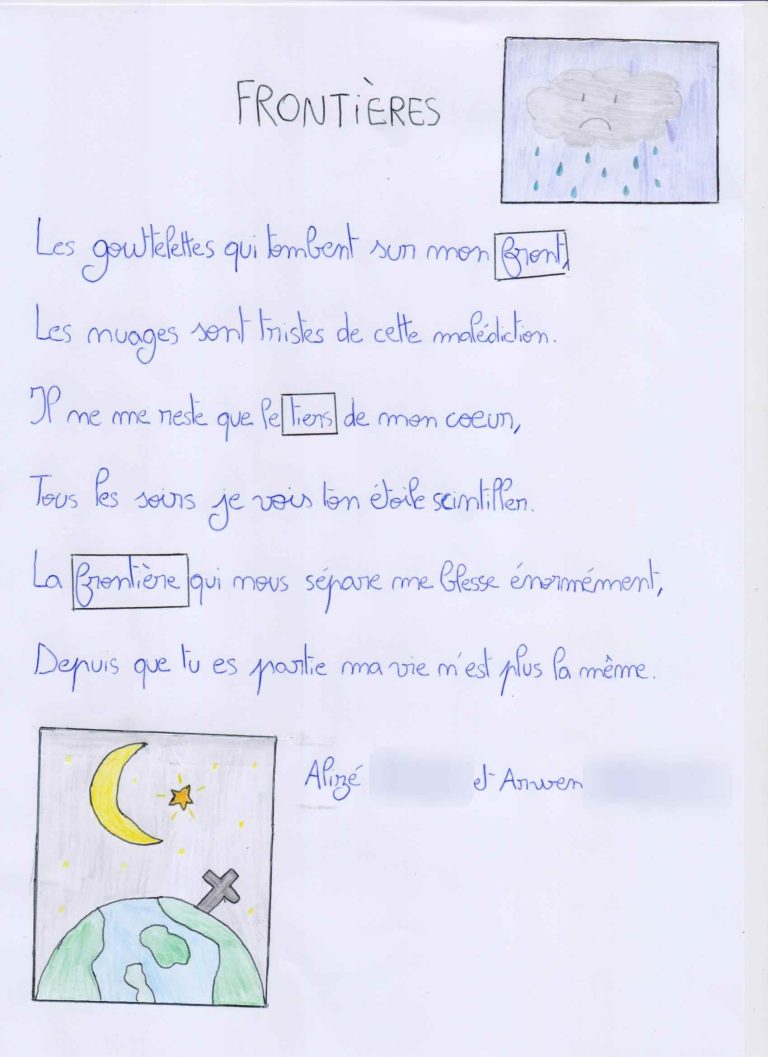 FRONTIÈRES
Les gouttelettes qui tombent sur mon front,
Les nuages sont tristes de cette malédiction.
Il ne me reste que le tiers de mon coeur,
Tous les soirs je vois ton étoile scintiller.
La frontière qui nous sépare me blesse énormément,
Depuis que tu es partie ma vie n'est plus la même.
Alizé et Anwen